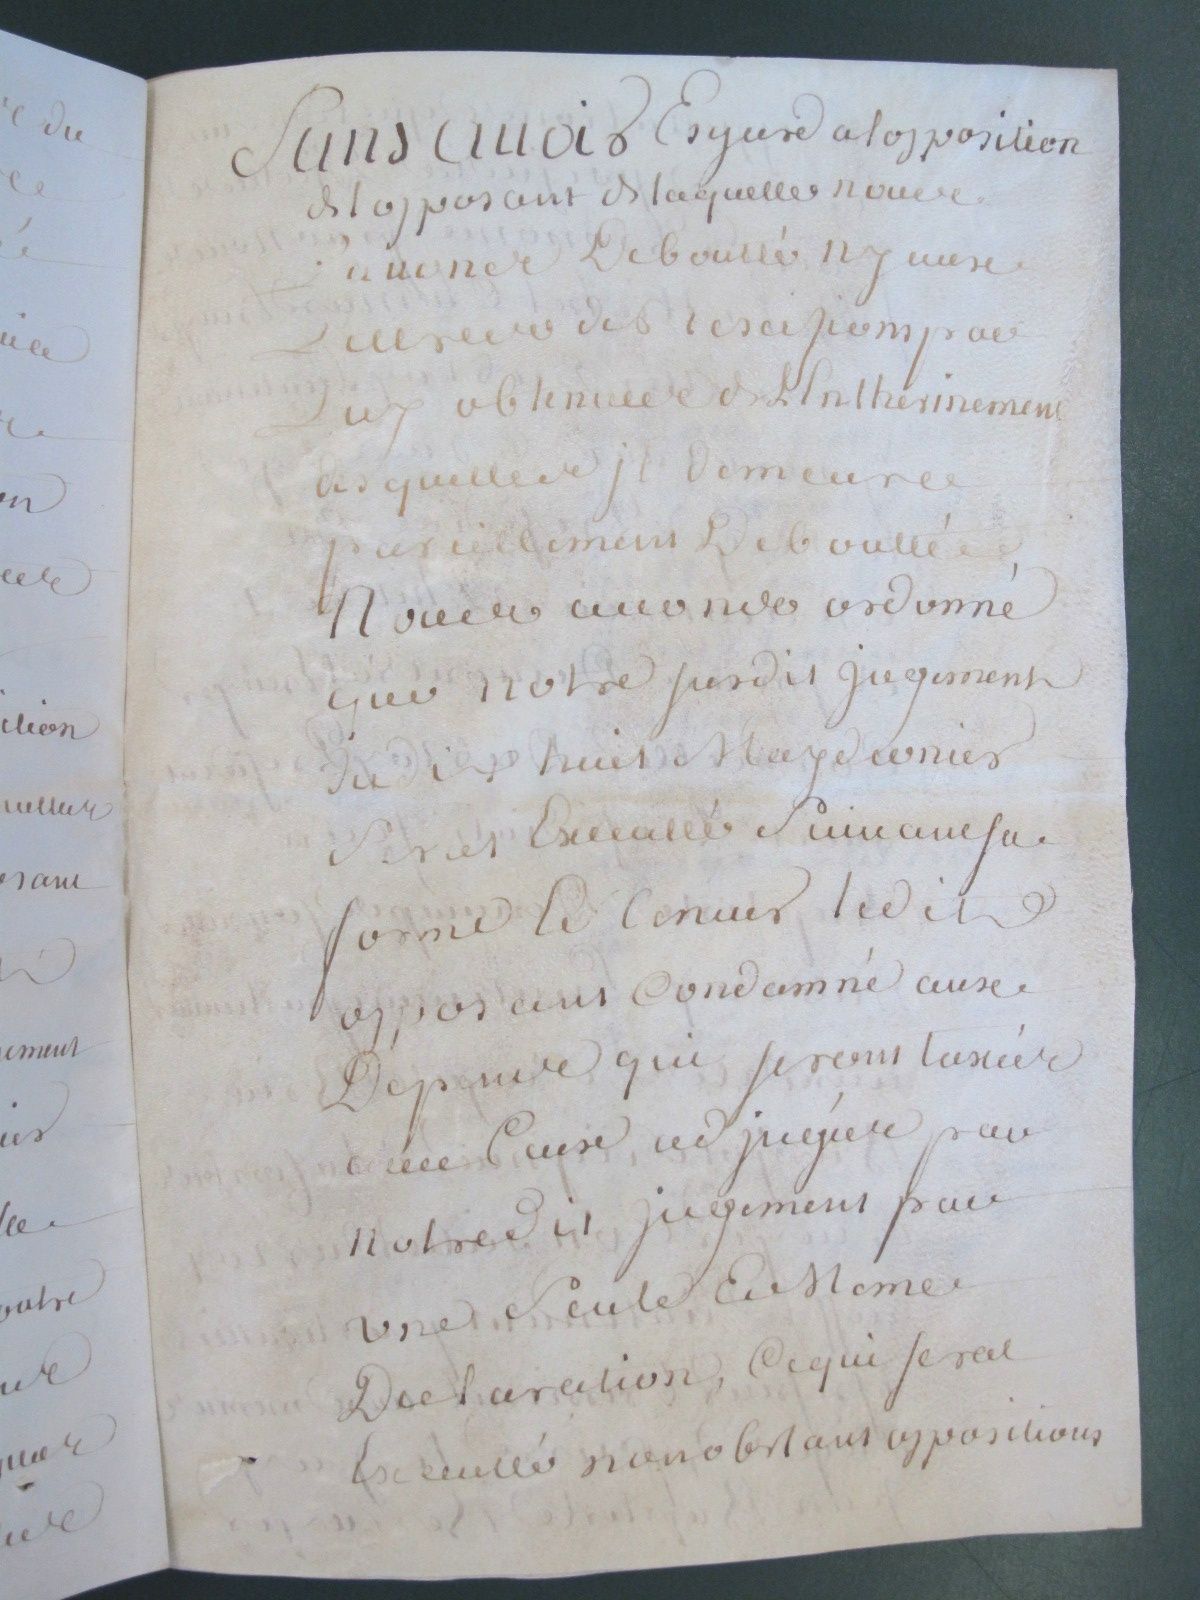 Sans auoir Esgard a lopposition
de lopposant de laquelle nous
l'auons Deboutté ny aux
Lettres de rescisions par
Luy obtenues de Lintherinement
desquelles jl demeure
pareillement Deboutté
Nous auons ordonné
que notre susdit jugement
du dix huit May dernier
Serat Executté Suiuant sa
forme Et teneur ledit
opposant Condamné aux
Dépens qui seront taxés
auec Ceux adjugés par
notredit jugement par
une Seule Et Meme
Declaration, Ce qui serat
Executté nonobstant oppositions